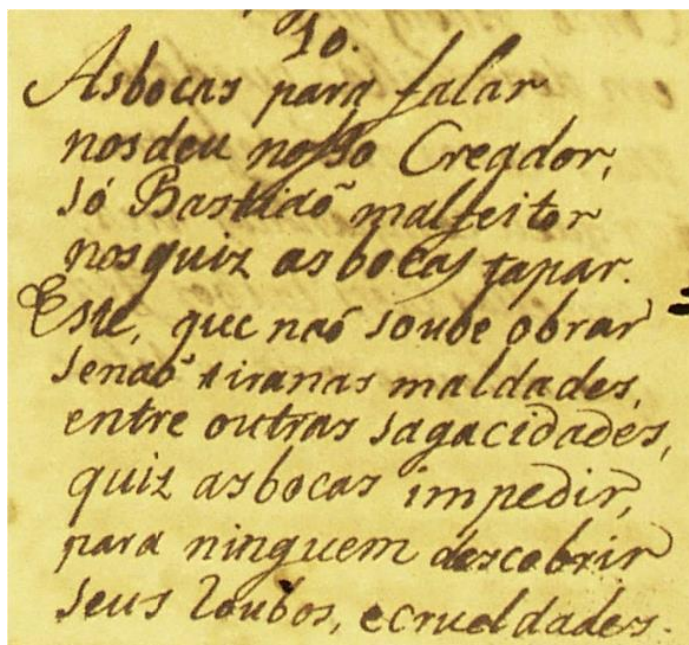 10.
Asbocas para falar
nosdeu nosso Creador,
só Bastiaõ malfeitor
nosquiz asbocas tapar.
Este, que naõ soube obrar
senaõ tiranas maldades,
entre outras sagacidades,
quiz asbocas impedir,
para ninguem descobrir
seus roubos, ecrueldades.